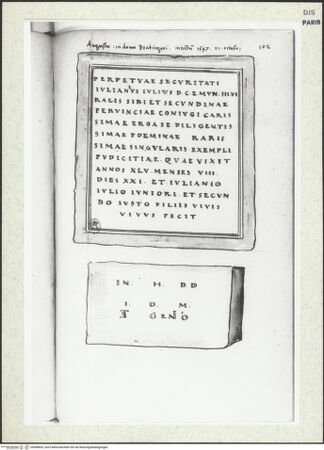 DIS
PARIS
Augustae in domo Peutingeri 102
PERPETVAE SECVRITATI
IVLIANVS IVLIVS D.C.E.M.VN. IIII.VI
RALIS SIBI ET SECVNDINAE
PERVINCIAE CONIVGI CARIS
SIMAE ERGA SE DILIGENTIS
SIMAE FOEMINAE RARIS
SIMAE SINGVLARIS EXEMPLI
PVDICITIAE. QVAE VIXIT
ANNOS XLV. MENSES VIII.
DIES XXI. ET IVLIANIO
IVLIO IVNIORI. ET SECVN
DO IVSTO FILIIS VIVIS
VIVVS FECIT
IN. H. DD
I. O. M.
ET GENIO